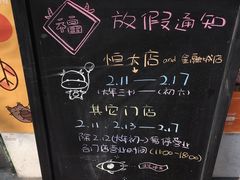 放假通知
恒大店 and 金融城店
2.11——2.17
(大年三十) (初六)
其它门店
2.11、2.13——2.17
除2.12(大年初一)暂停营业
各门店营业时间(11:00-18:00)